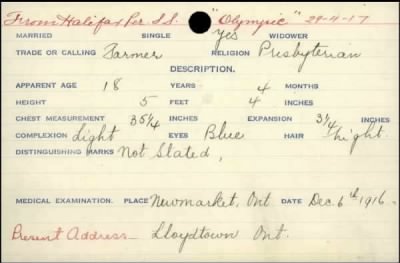 From Halifax Per S.S. "Olympic" 29-4-17
MARRIED SINGLE yes WIDOWER
TRADE OR CALLING Farmer RELIGION Presbyterian
DESCRIPTION.
APPARENT AGE 18 YEARS 4 MONTHS
HEIGHT 5 FEET 4 INCHES
CHEST MEASUREMENT 35 1/4 INCHES EXPANSION 3 1/4 INCHES
COMPLEXION Light EYES Blue HAIR Light.
DISTINGUISHING MARKS Not Stated,
MEDICAL EXAMINATION. PLACE Newmarket, Ont DATE Dec. 6th 1916.
Present Address Lloydtown Ont.